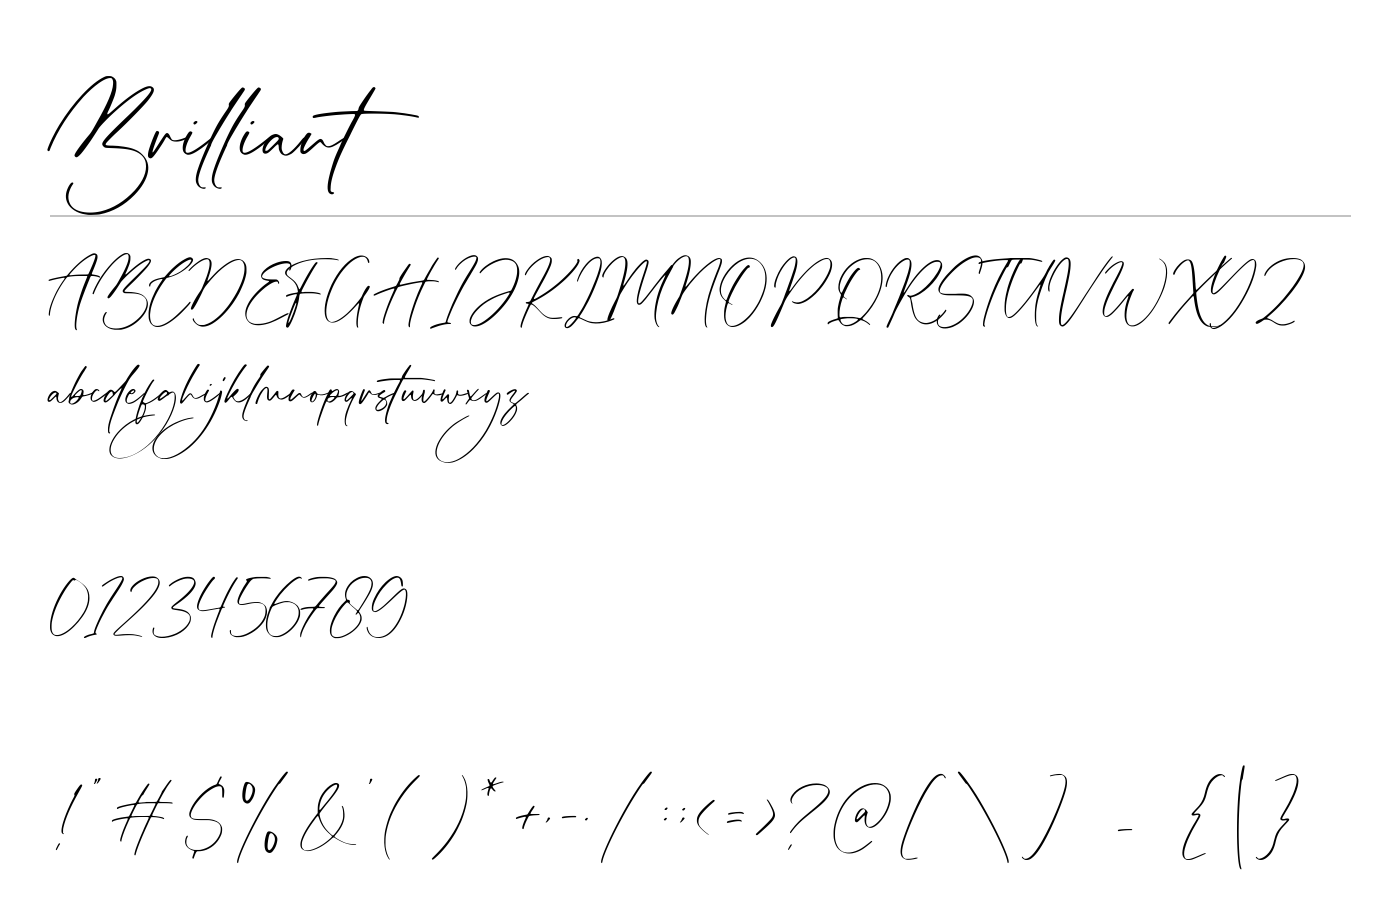 Brilliant
ABCDEFGHIJKLMNOPQRSTUVWXYZ
abcdefghijklmnopqrstuvwxyz
0123456789
!"#$%&'()*+,-./:;<=>?@[\]_{|}